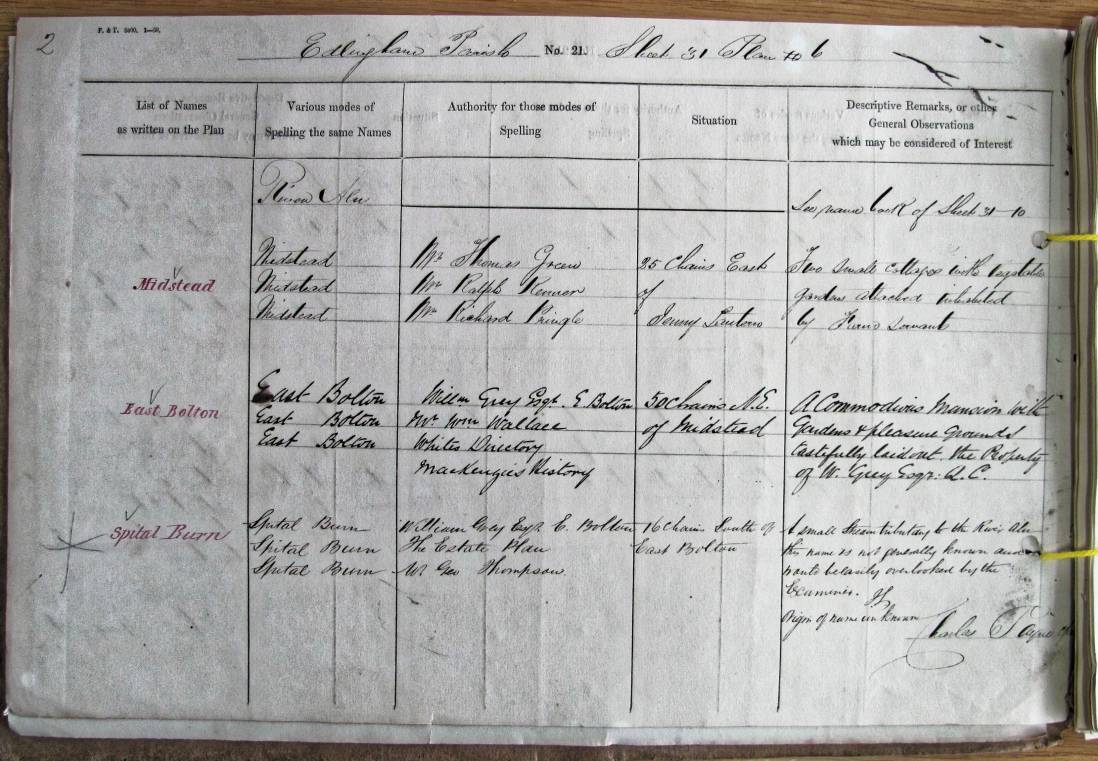 2
Edlingham Parish No. 21. Sheet 31 Plan No 6
List of Names
as written on the Plan
Various modes of
Spelling the same Names
Authority for those modes of
Spelling
Situation
Descriptive Remarks, or other
General Observations
which may be considered of Interest
River Aln
See name back of Sheet 31-10
Midstead
Midstead
Midstead
Midstead
Mr Thomas Green
Mr Ralph
Mr Richard Pringle
25 Chains East
of
Jenny
Two small cottages with vegetable
gardens attached inhabited
by Farm servants
East Bolton
East Bolton
East Bolton
East Bolton
Willm Grey Esqr. E Bolton
Mr. Wm Wallace
Whites Directory
Mackenzie's History
50 chains N.E.
of Midstead
A Commodious Mansion with
Gardens & pleasure Grounds
tastefully laid out. the Property
of W. Grey Esqr.
Spital Burn
Spital Burn
Spital Burn
Spital Burn
William Grey Esqr E. Bolton
The Estate Plan
Mr. Geo Thompson.
16 chains South of
East Bolton
A small Stream tributary to the River Aln
this name is not generally known and
easily overlooked by the
Examiner.
Origin of name unknown
Charles Payne